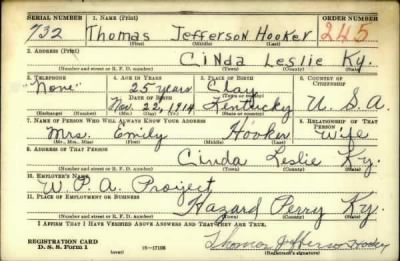 SERIAL NUMBER 1. NAME (Print) ORDER NUMBER
732 Thomas Jefferson Hooker 245
(First) (Middle) (Last)
2. ADDRESS (Print)
Cinda Leslie Ky.
(Number and street or R. F. D. number) (Town) (County) (State)
3. TELEPHONE 4. AGE IN YEARS 5. PLACE OF BIRTH 6. COUNTRY OF CITIZENSHIP
"None" 25 years Clay
DATE OF BIRTH (Town or county)
Nov. 22, 1914 Kentucky U. S. A.
(Exchange) (No.) (Mo.) (Day) (Yr.) (State or country)
7. NAME OF PERSON WHO WILL ALWAYS KNOW YOUR ADDRESS 8. RELATIONSHIP OF THAT PERSON
Mrs. Emily Hooker Wife
(Mr., Mrs., Miss) (First) (Middle) (Last)
9. ADDRESS OF THAT PERSON
Cinda Leslie Ky.
(Number and street or R. F. D. number) (Town) (County) (State)
10. EMPLOYER'S NAME
W. P. A. Project
11. PLACE OF EMPLOYMENT OR BUSINESS
Hazard Perry Ky.
(Number and street or R. F. D. number) (Town) (County) (State)
I AFFIRM THAT I HAVE VERIFIED ABOVE ANSWERS AND THAT THEY ARE TRUE.
REGISTRATION CARD
D. S. S. Form 1 (over) 16—17105 Thomas Jefferson Hooker
(Registrant's signature)